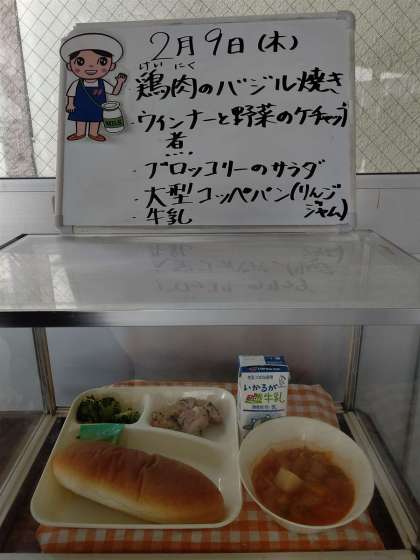 2月9日(木)
けい にく
・鶏肉のバジル焼き
・ウィンナーと野菜のケチャップ
煮
・ブロッコリーのサラダ
・大型コッペパン(りんご
ジャム)
・牛乳
MILK
いかるが
牛乳